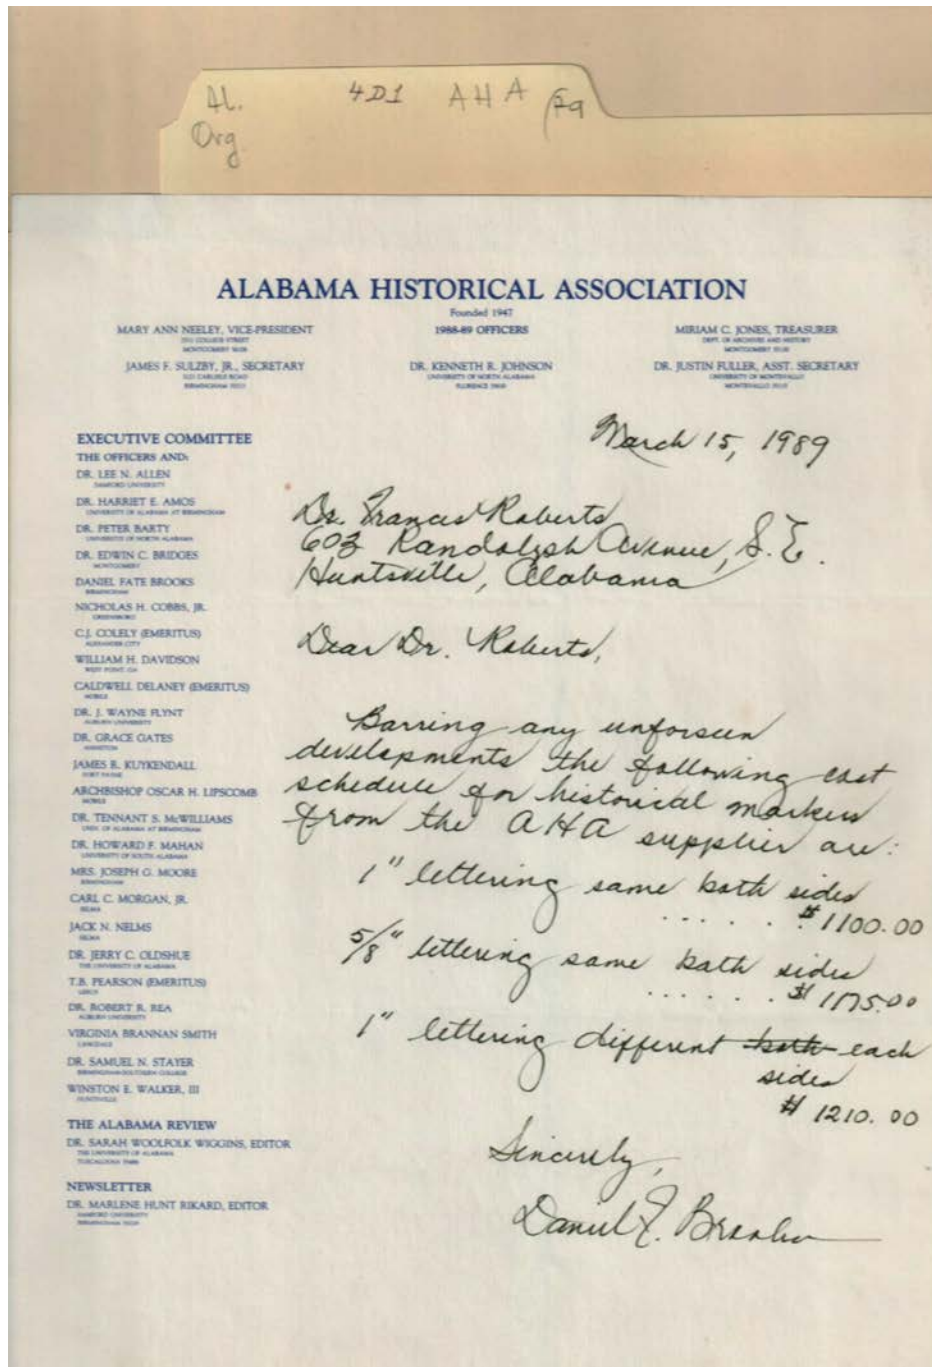 Al. 4D1 AHA
Org
ALABAMA HISTORICAL ASSOCIATION
Founded 1947
MARY ANN NEELEY, VICE-PRESIDENT
1988-89 OFFICERS
MIRIAM C. JONES, TREASURER
DEPT. OF ARCHIVES AND HISTORY
JAMES F. SULZBY, JR., SECRETARY
DR. KENNETH R. JOHNSON
UNIVERSITY OF NORTH ALABAMA
DR. JUSTIN FULLER, ASST. SECRETARY
UNIVERSITY OF MONTEVALLO
EXECUTIVE COMMITTEE
THE OFFICERS AND:
DR. LEE N. ALLEN
SAMFORD UNIVERSITY
DR. HARRIET E. AMOS
UNIVERSITY OF ALABAMA AT BIRMINGHAM
DR. PETER BARTY
UNIVERSITY OF NORTH ALABAMA
DR. EDWIN C. BRIDGES
MONTGOMERY
DANIEL FATE BROOKS
BIRMINGHAM
NICHOLAS H. COBBS, JR.
GREENSBORO
C.J. COLELY (EMERITUS)
ALEXANDER CITY
WILLIAM H. DAVIDSON
WEST POINT, GA
CALDWELL DELANEY (EMERITUS)
MOBILE
DR. J. WAYNE FLYNT
AUBURN UNIVERSITY
DR. GRACE GATES
ANNISTON
JAMES R. KUYKENDALL
FORT PAYNE
ARCHBISHOP OSCAR H. LIPSCOMB
MOBILE
DR. TENNANT S. McWILLIAMS
UNIV. OF ALABAMA AT BIRMINGHAM
DR. HOWARD F. MAHAN
UNIVERSITY OF SOUTH ALABAMA
MRS. JOSEPH G. MOORE
BIRMINGHAM
CARL C. MORGAN, JR.
SELMA
JACK N. NELMS
SELMA
DR. JERRY C. OLDSHUE
THE UNIVERSITY OF ALABAMA
T.B. PEARSON (EMERITUS)
DR. ROBERT R. REA
AUBURN UNIVERSITY
VIRGINIA BRANNAN SMITH
LANGDALE
DR. SAMUEL N. STAYER
BIRMINGHAM-SOUTHERN COLLEGE
WINSTON E. WALKER, III
HUNTSVILLE
THE ALABAMA REVIEW
DR. SARAH WOOLFOLK WIGGINS, EDITOR
THE UNIVERSITY OF ALABAMA
NEWSLETTER
DR. MARLENE HUNT RIKARD, EDITOR
SAMFORD UNIVERSITY
March 15, 1989
Dr. Frances Roberts
603 Randolph Avenue, S.E.
Huntsville, Alabama
Dear Dr. Roberts,
Barring any unforseen
developments the following cost
schedule for historical markers
from the AHA supplier are:
1" lettering same both sides
. . . . . . $1100.00
5/8" lettering same both sides
. . . . . . $1175.00
1" lettering different both each
sides
$1210.00
Sincerely,
Daniel F. Brooks